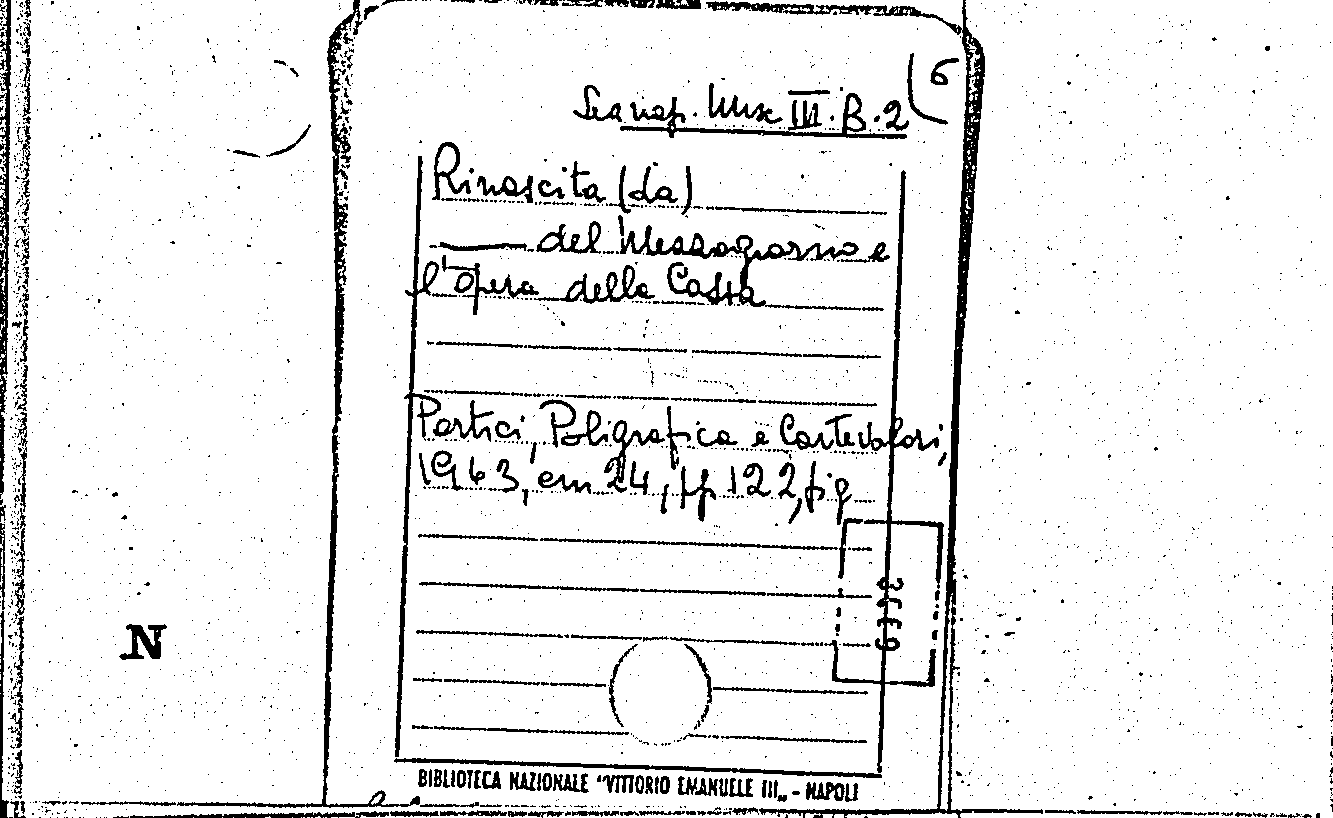 6
III.B.2
Rinascita (da)
—— del Mezzogiorno e
l'opera della Cassa
Portici, Poligrafica e Cartevalori,
1963, cm 24, pp 122, fig
N
BIBLIOTECA NAZIONALE "VITTORIO EMANUELE III„ - NAPOLI